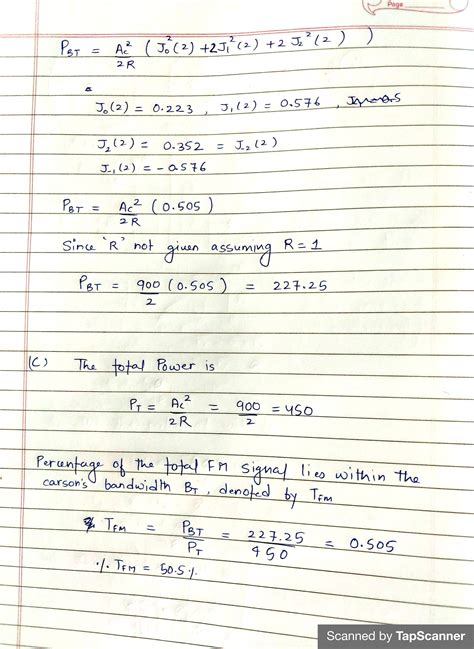 Page
P_BT = Ac²/2R (J₀²(2) + 2J₁²(2) + 2J₂²(2))
J₀(2) = 0.223 , J₁(2) = 0.576 ,
J₂(2) = 0.352 = J₋₂(2)
J₋₁(2) = -0.576
P_BT = Ac²/2R (0.505)
Since 'R' not given assuming R = 1
P_BT = 900/2 (0.505) = 227.25
(C) The total Power is
P_T = Ac²/2R = 900/2 = 450
Percentage of the total FM signal lies within the
carson's bandwidth B_T, denoted by T_FM
T_FM = P_BT/P_T = 227.25/450 = 0.505
% T_FM = 50.5%
Scanned by TapScanner